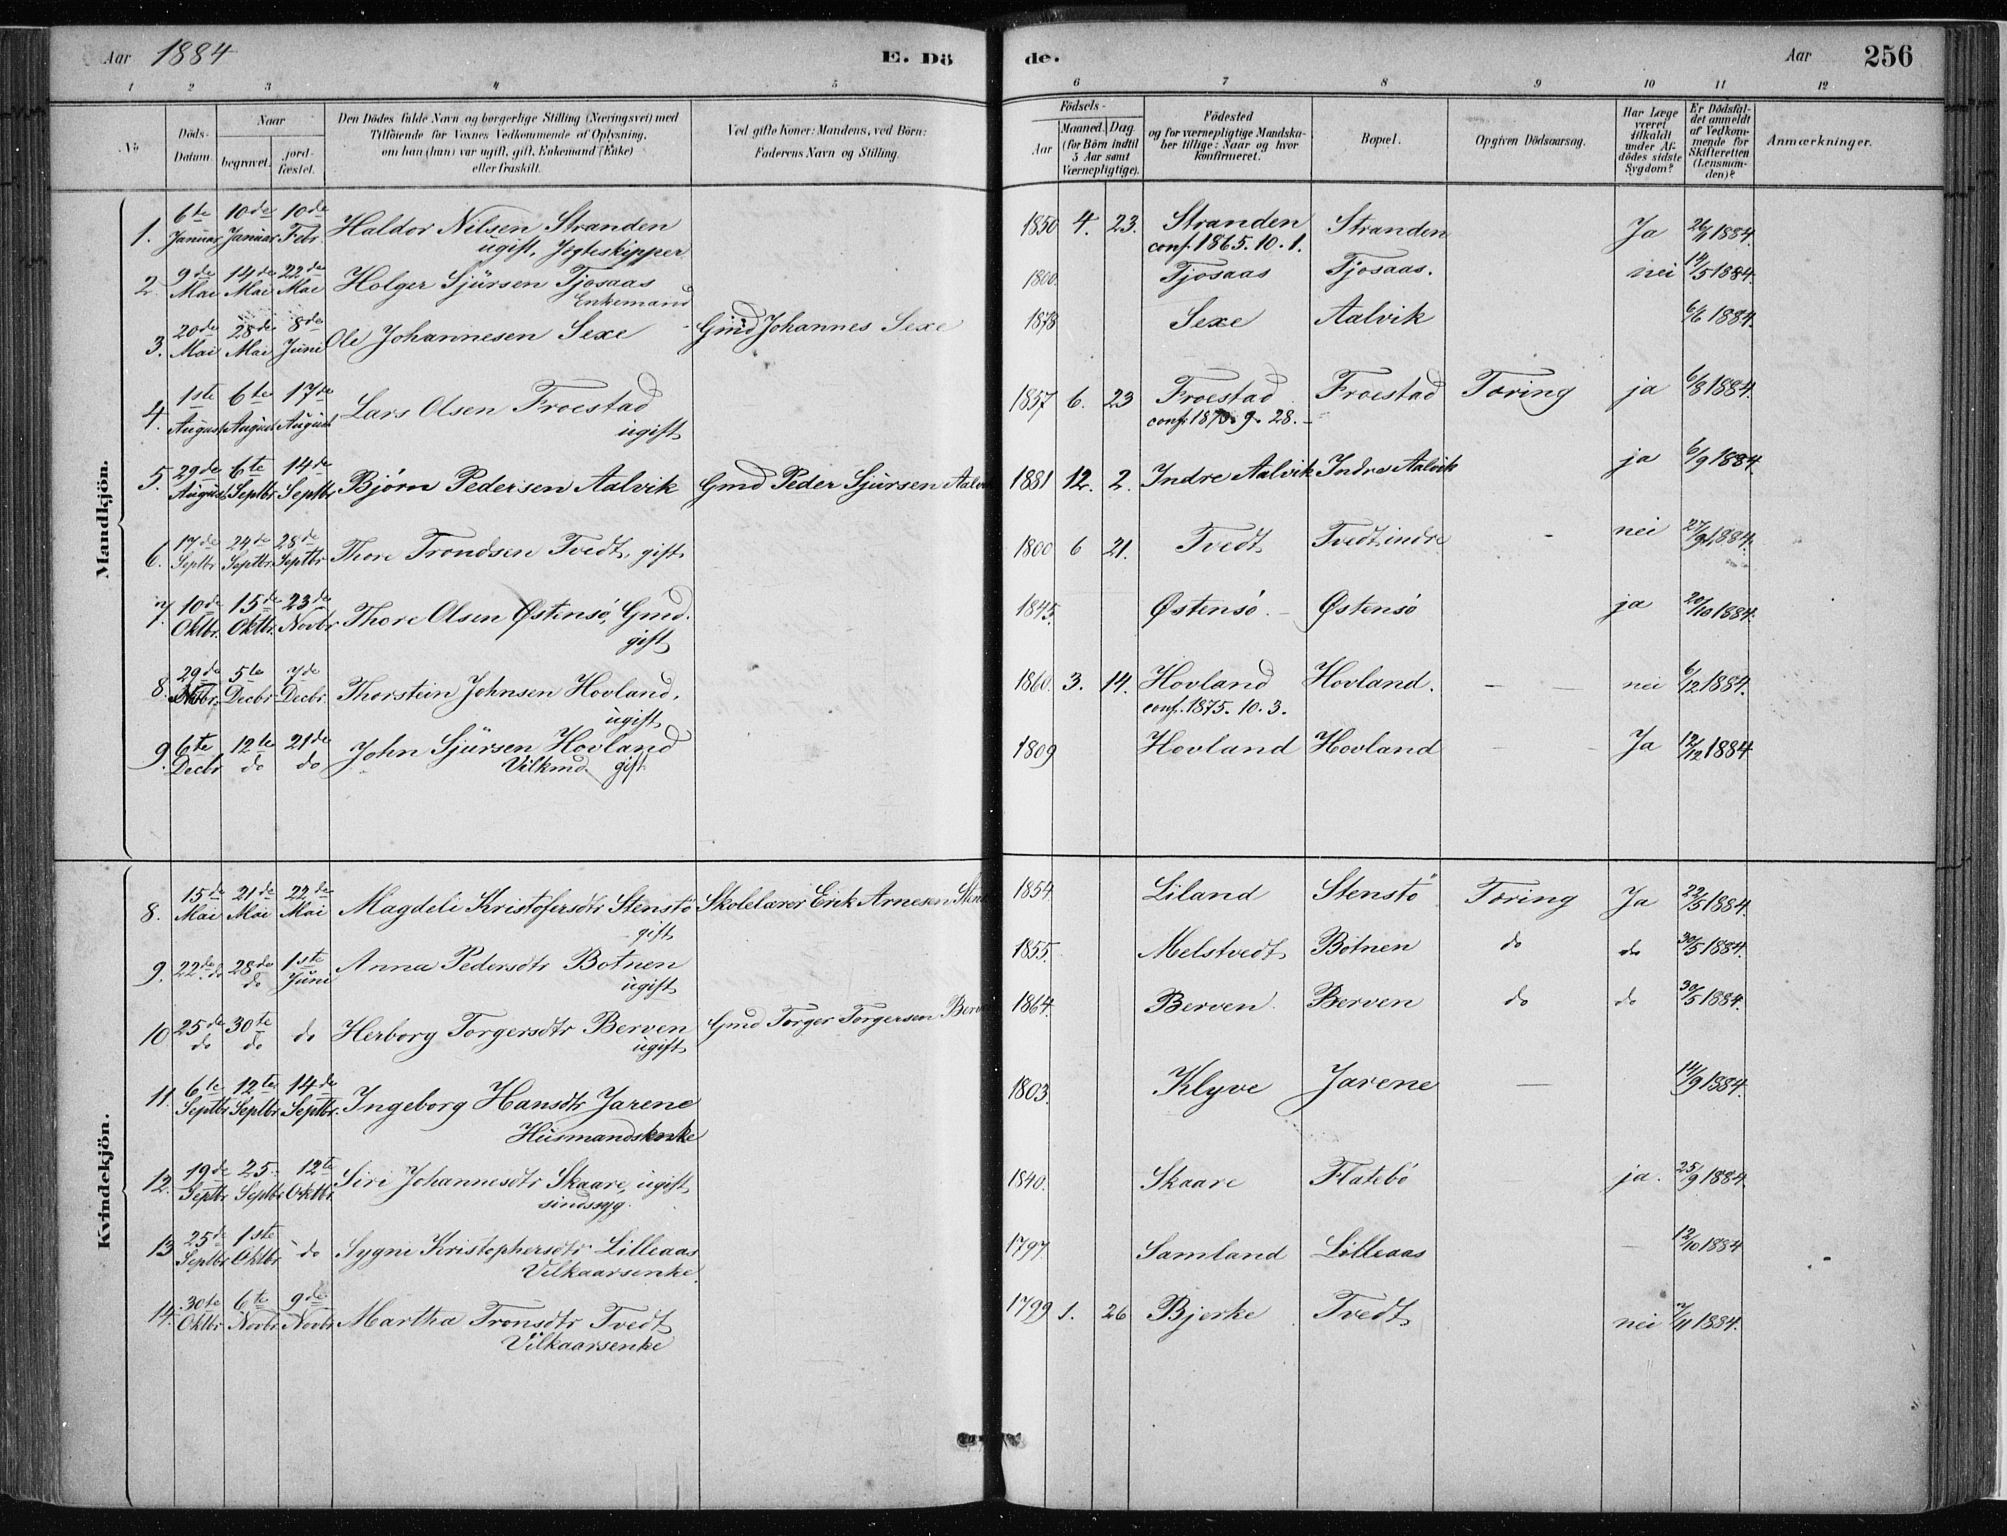 Aar 1884 E. Dö
de. Aar 256
1 2 3 4 5
6 7 8 9 10 11 12
No
Döds-Datum.
Naar
begravet. jordfæstet.
Den Dödes fulde Navn og borgerlige Stilling (Næringsvei) med
Tilföiende for Voxnes Vedkommende af Oplysning,
om han (hun) var ugift, gift, Enkemand (Enke)
eller fraskilt.
Ved gifte Koner: Mandens, ved Börn:
Faderens Navn og Stilling.
Födsels-
Aar Maaned. Dag
(for Börn indtil
5 Aar samt
Værnepligtige).
Födested
og for værnepligtige Mandskaber tillige: Naar og hvor
konfirmeret.
Bopæl.
Opgiven Dödsaarsag.
Har Læge
været
tilkaldt
under Afdödes sidste
Sygdom?
Er Dödsfaldet anmeldt
af Vedkommende for
Skifteretten
(Lensmanden)?
Anmærkninger.
Mandkjön.
1. 6te Januar 10de Januar 10de Febr. Haldor Nilsen Stranden 1850 4. 23. Stranden Stranden Ja 26/1 1884.
ugift, Jagteskipper conf. 1865. 10. 1.
2. 9de Mai 14de Mai 22de Mai Holger Sjürsen Tjosaas 1800. Tjosaas Tjosaas. nei 14/5 1884.
Enkemand
3. 20de Mai 28de Mai 8de Juni Ole Johannesen Sexe Gmd Johannes Sexe 1878 Sexe Aalvik 6/6 1884.
4. 1ste August 6te August 17de August Lars Olsen Froestad 1857 6. 23 Froestad Froestad Tæring ja 6/8 1884.
ugift conf. 187 9. 28.
5. 29de August 6te Septbr 14de Septbr Bjørn Pedersen Aalvik Gmd Peder Sjursen Aalvik 1881 12. 2. Indre Aalvik Indre Aalvik ja 6/9 1884.
6. 17de Septbr 24de Septbr 28de Septbr Thore Trondsen Tvedt, gift 1800 6 21. Tvedt Tvedt indre - nei 27/9 1884.
7 10de Oktbr. 15de Oktbr. 23de Novbr Thore Olsen Østensö, Gmd. 1845. Østensö Østensö ja 20/10 1884.
gift
8. 29de 5te Decbr 7de Decbr. Thorstein Johnsen Hovland, 1860. 3. 14. Hovland Hovland. - nei 6/12 1884.
ugift conf. 1875. 10. 3.
9. 6te Decbr 12te do 21de do John Sjürsen Hovland 1809 Hovland Hovland Ja 12/12 1884
Vilkmd. gift
Kvindekjön.
8. 15de Mai 21de Mai 22de Mai Magdeli Kristofersdtr Stenstö Skolelærer Erik Arnesen 1854. Liland Stenstö Tæring Ja 22/5 1884.
gift
9. 22de do 28de do 1ste Juni Anna Pedersdtr Botnen 1855. Melstvedt Botnen do do 30/5 1884.
ugift
10 25de do 30te do do Herborg Torgersdtr Berven Gmd Torger Torgersen Berven 1864. Berven Berven do do 30/5 1884.
ugift
11. 6te Septbr 12te Septbr 14de Septbr. Ingeborg Hansdtr Jarene 1803. Klyve Jarene - 14/9 1884.
Husmandsenke
12. 19de Septbr 25. Septbr 12te Oktbr. Siri Johannesdtr Skaare, ugift, 1840. Skaare Flatebö ja. 25/9 1884.
sindssyg.
13 25de Septbr 1ste Oktbr do Sygni Kristophersdtr Lilleaas 1797. Samland Lilleaas - 12/10 1884
Vilkaarsenke.
14. 30te Oktbr 6te Novbr 9de Novbr Martha Tronsdtr Tvedt 1799 1. 26 Bjerke Tvedt nei 7/11 1884.
Vilkaarsenke